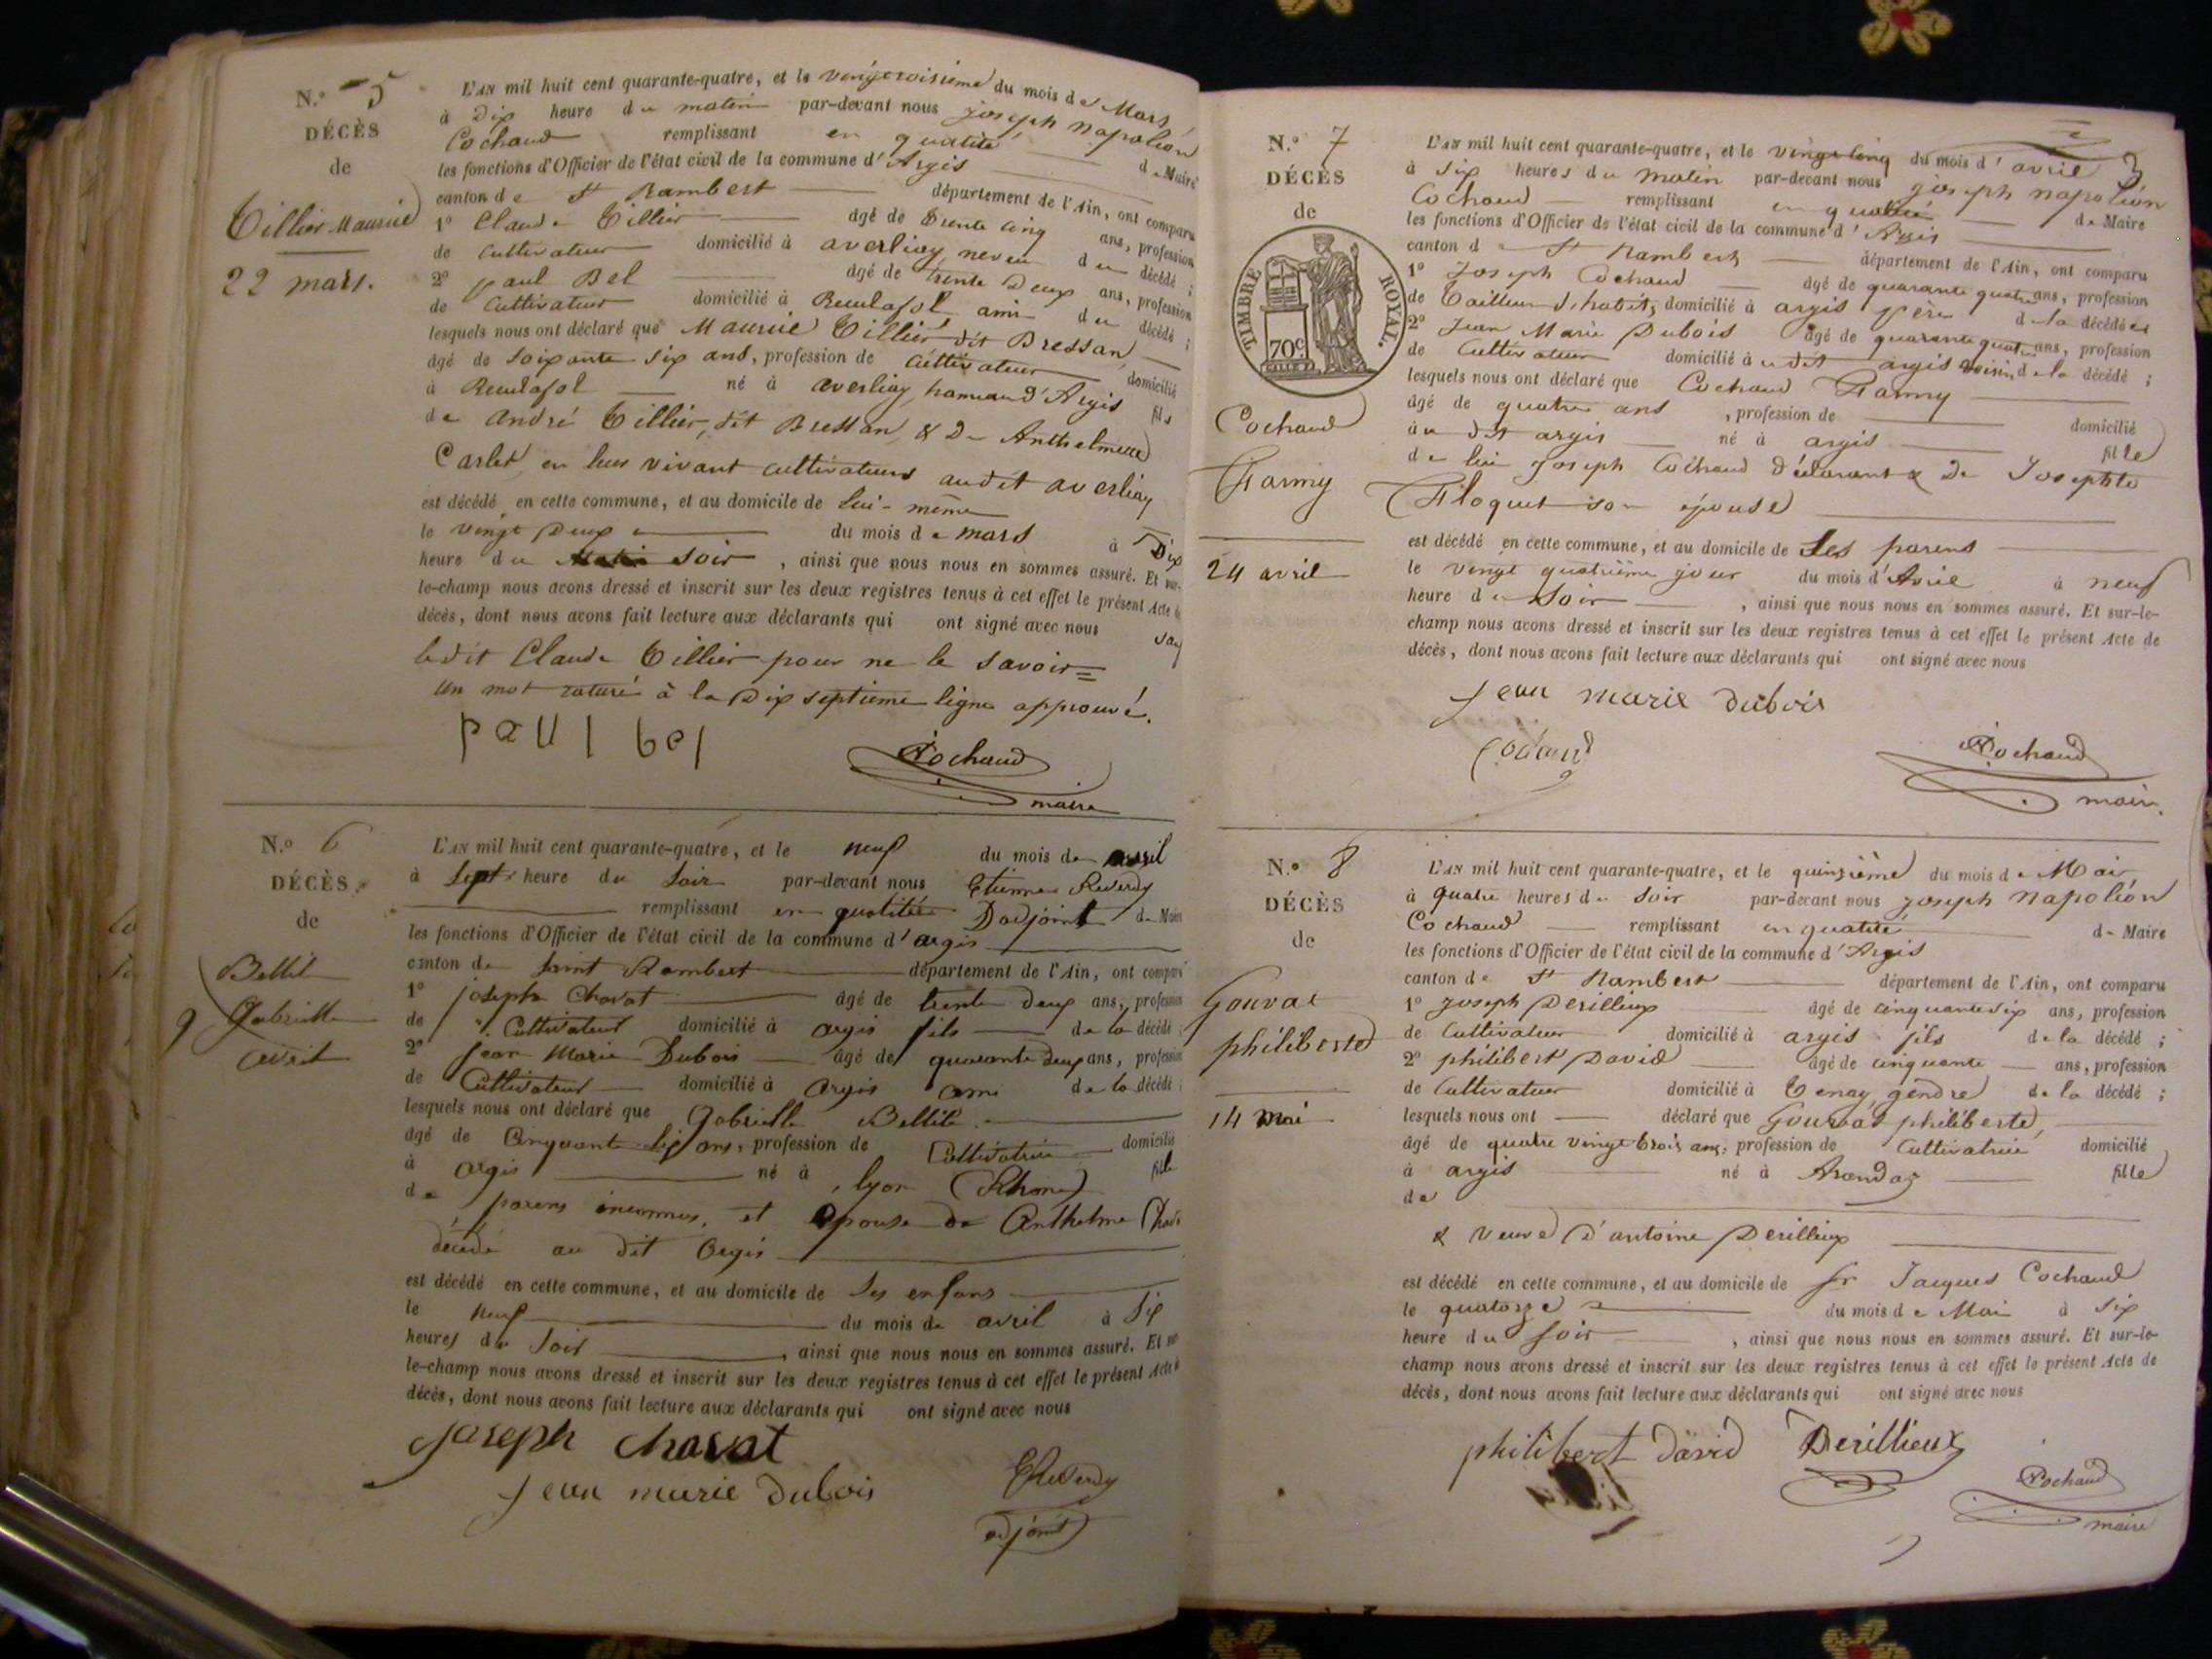 N.o 5
DÉCÈS
de
Tillier Maurice
22 mars.
L'AN mil huit cent quarante-quatre, et le vingt troisième du mois de Mars,
à Dix heure du matin par-devant nous joseph napoléon
Cochaud remplissant en qualité de Maire
les fonctions d'Officier de l'état civil de la commune d'Argis
canton de St Rambert département de l'Ain, ont comparu
1o Claude Tillier âgé de trente cinq ans, profession
de cultivateur domicilié à averliay, neveu du décédé ;
2o paul Bel âgé de trente Deux ans, profession
de cultivateur domicilié à Reculafol ami du décédé ;
lesquels nous ont déclaré que Maurice Tillier dit Bressan,
âgé de soixante six ans, profession de cultivateur domicilié
à Reculafol né à averliay, hameau d'Argis fils
de andré Tillier, dit Bressan & De Anthelmette
Carlet, en leur vivant cultivateurs audit averliay
est décédé en cette commune, et au domicile de lui-même
le vingt Deux du mois de mars à Dix
heure du soir, ainsi que nous nous en sommes assuré. Et sur-
le-champ nous avons dressé et inscrit sur les deux registres tenus à cet effet le présent Acte de
décès, dont nous avons fait lecture aux déclarants qui ont signé avec nous sauf
ledit Claude Tillier pour ne le savoir =
un mot raturé à la Dix septième ligne approuvé.
paul bel
Cochaud
maire
N.o 6
DÉCÈS
de
Bellit
Gabrielle
9 avril
L'AN mil huit cent quarante-quatre, et le neuf du mois de avril
à sept heure du soir par-devant nous Etienne Reverdy
remplissant en qualité D'adjoint de Maire
les fonctions d'Officier de l'état civil de la commune d'argis
canton de saint Rambert département de l'Ain, ont comparu
1o joseph Chavat âgé de trente deux ans, profession
de Cultivateur domicilié à argis fils de la décédé ;
2o Jean Marie Dubois âgé de quarante deux ans, profession
de Cultivateur domicilié à argis ami de la décédé ;
lesquels nous ont déclaré que Gabrielle Bellit
âgé de Cinquante six ans, profession de Cultivatrice domicilié
à argis né à lyon (Rhône) fille
de parens inconnus, et épouse de Anthelme
décédé au dit argis
est décédé en cette commune, et au domicile de ses enfans
le neuf du mois de avril à six
heures du soir, ainsi que nous nous en sommes assuré. Et sur-
le-champ nous avons dressé et inscrit sur les deux registres tenus à cet effet le présent Acte de
décès, dont nous avons fait lecture aux déclarants qui ont signé avec nous
joseph chavat
jean marie dubois
EReverdy
adjoint
3
N.o 7
DÉCÈS
de
TIMBRE ROYAL.
70c
Cochaud
Fanny
24 avril
L'AN mil huit cent quarante-quatre, et le vingt cinq du mois d'avril
à six heures du matin par-devant nous joseph napoléon
Cochaud remplissant en qualité de Maire
les fonctions d'Officier de l'état civil de la commune d'Argis
canton d St Rambert département de l'Ain, ont comparu
1o Joseph Cochaud âgé de quarante quatre ans, profession
de tailleur d'habits, domicilié à argis père de la décédé
2o Jean Marie Dubois âgé de quarante quatre ans, profession
de cultivateur domicilié à udit argis voisin de la décédé ;
lesquels nous ont déclaré que Cochaud Fanny
âgé de quatre ans, profession de domicilié
à u dit argis né à argis fille
de lui Joseph Cochaud déclarant & De Josephte
Floquet son épouse
est décédé en cette commune, et au domicile de ses parens
le vingt quatrième jour du mois d'Avril à neuf
heure du soir, ainsi que nous nous en sommes assuré. Et sur-le-
champ nous avons dressé et inscrit sur les deux registres tenus à cet effet le présent Acte de
décès, dont nous avons fait lecture aux déclarants qui ont signé avec nous
jean marie dubois
Cochaud
maire.
N.o 8
DÉCÈS
de
Gouvat
philiberte
14 mai
L'AN mil huit cent quarante-quatre, et le quinzième du mois de Mai
à quatre heures du soir par-devant nous joseph Napoléon
Cochaud remplissant en qualité de Maire
les fonctions d'Officier de l'état civil de la commune d'Argis
canton de St Rambert département de l'Ain, ont comparu
1o joseph Derillieux âgé de cinquante six ans, profession
de cultivateur domicilié à argis fils de la décédé ;
2o philibert David âgé de cinquante ans, profession
de cultivateur domicilié à Tenay, gendre de la décédé ;
lesquels nous ont déclaré que Gouvat philiberte,
âgé de quatre vingt trois ans, profession de cultivatrice domicilié
à argis né à Arandas fille
de
& veuve D'antoine Derillieux
est décédé en cette commune, et au domicile de sr Jacques Cochaud
le quatorze du mois de Mai à six
heure du soir, ainsi que nous nous en sommes assuré. Et sur-le-
champ nous avons dressé et inscrit sur les deux registres tenus à cet effet le présent Acte de
décès, dont nous avons fait lecture aux déclarants qui ont signé avec nous
philibert david Derillieux
Cochaud
maire